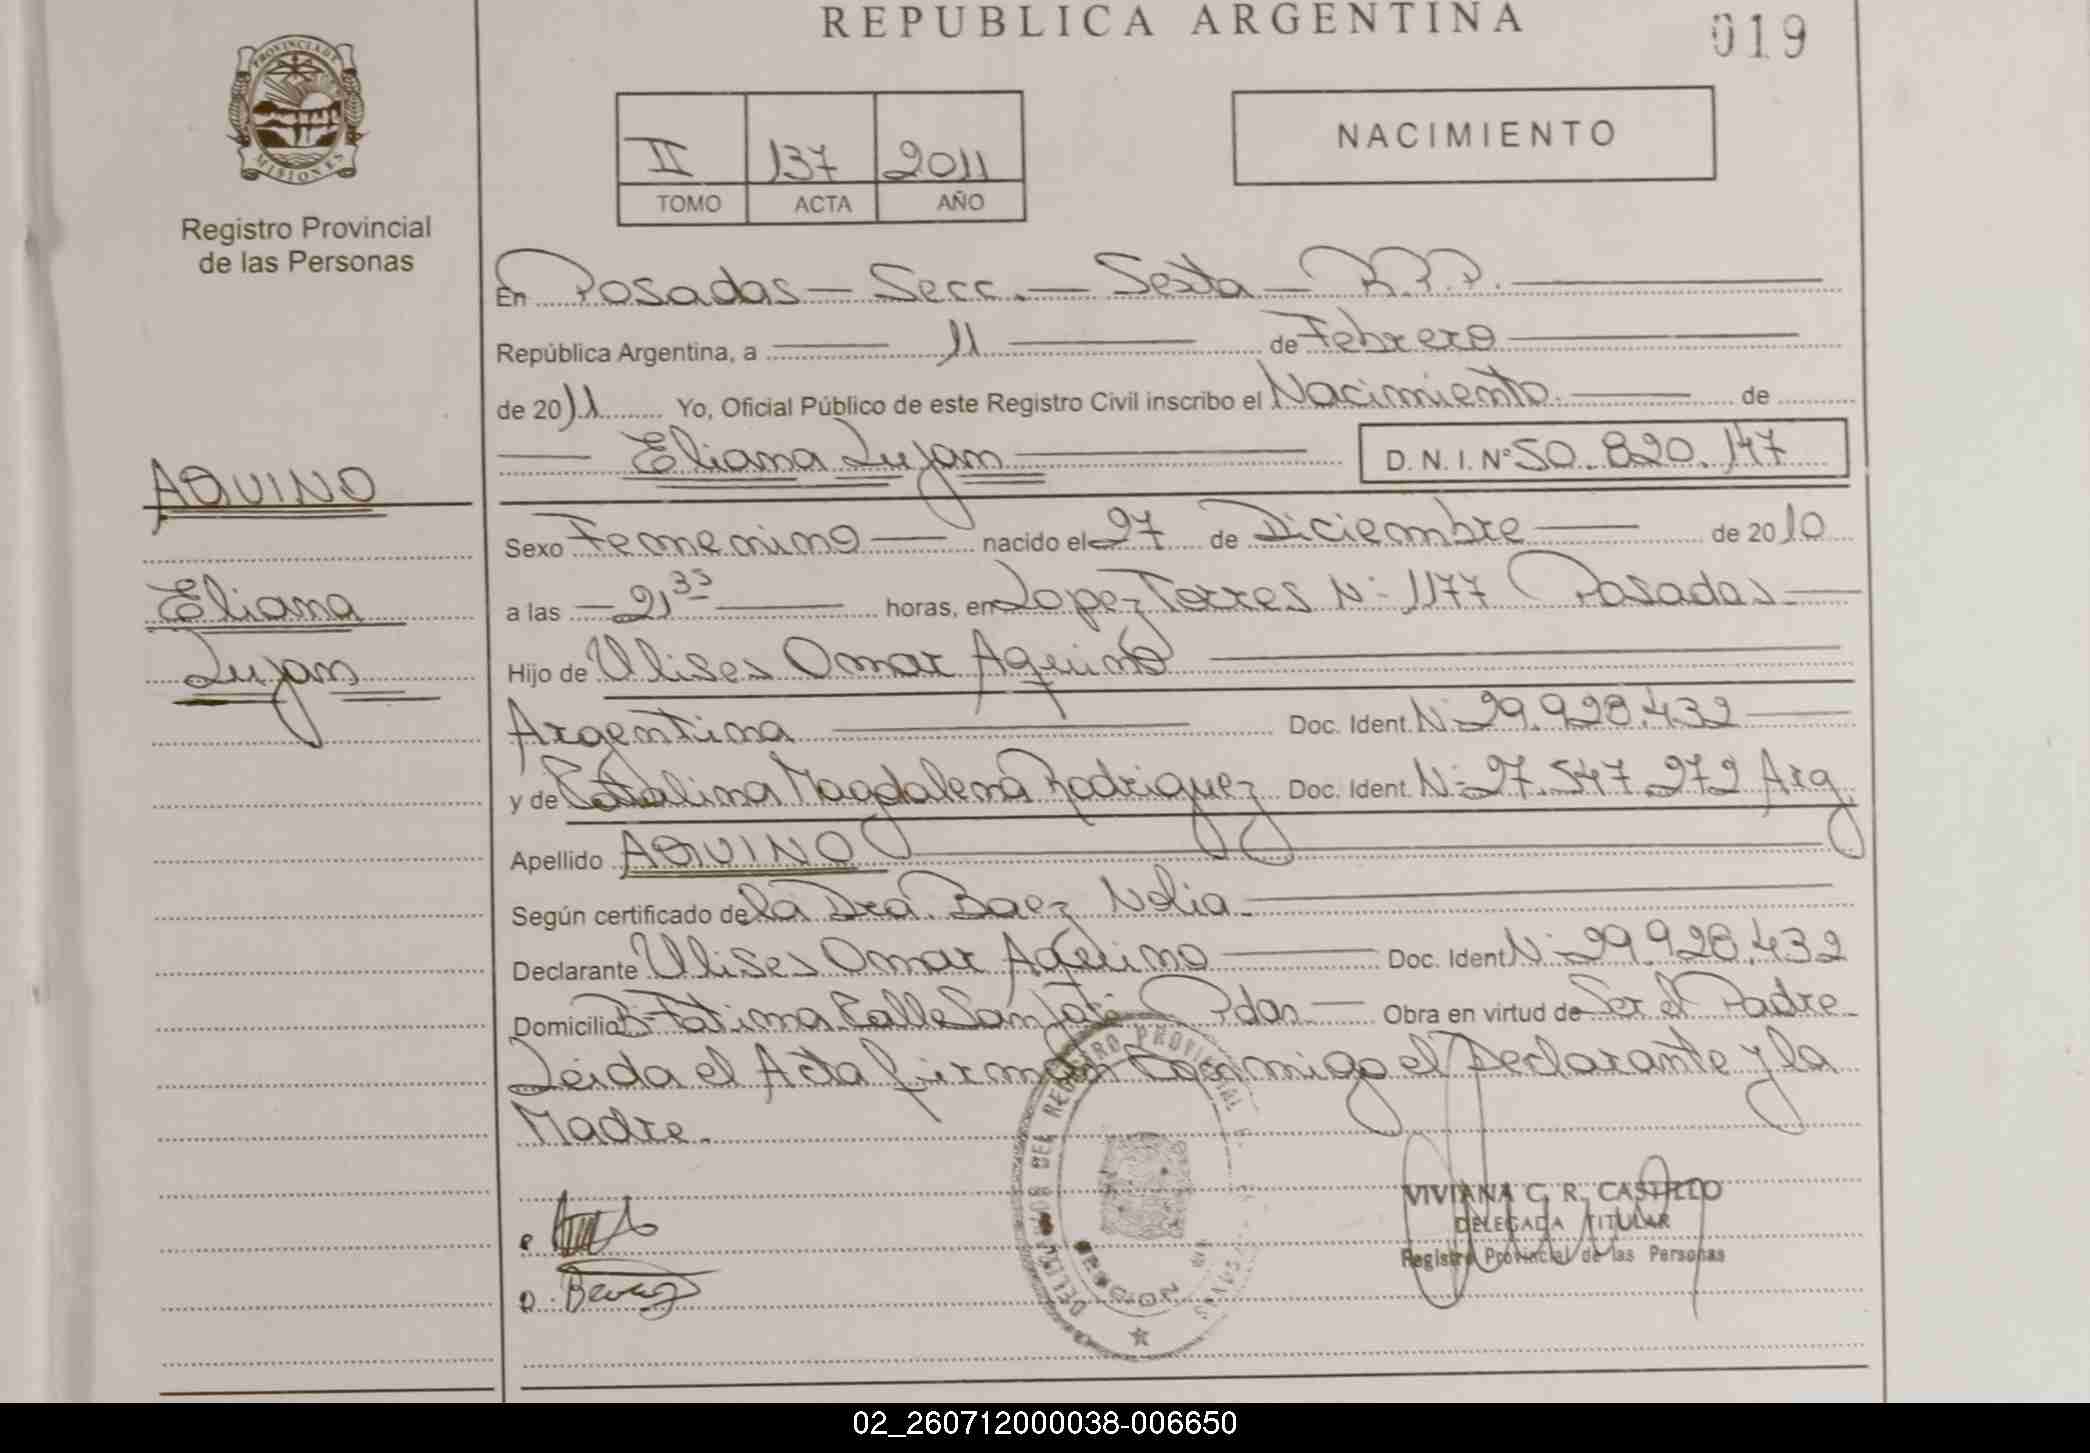 REPUBLICA ARGENTINA
019
PROVINCIA DE
MISIONES
Registro Provincial
de las Personas
II 137 2011
TOMO ACTA AÑO
NACIMIENTO
En Posadas - Secc. - Sexta - R.P.P.
República Argentina, a 11 de Febrero
de 2011 Yo, Oficial Público de este Registro Civil inscribo el Nacimiento de
Eliana Lujan D.N.I. Nº 50.820.147
AQUINO
Eliana
Lujan
Sexo Femenino nacido el 27 de Diciembre de 2010
a las 21 35 horas, en Lopez Torres Nº 1177 Posadas
Hijo de Ulises Omar Aquino
Argentina Doc. Ident. Nº 29.928.432
y de Catalina Magdalena Rodriguez Doc. Ident. Nº 27.547.272 Arg
Apellido AQUINO
Según certificado de la Dra. Baez Nelia
Declarante Ulises Omar Aquino Doc. Ident Nº 29.928.432
Domicilio Bº Fatima Calle San José Pdas Obra en virtud de Ser el Padre
Leida el Acta firman Conmigo el Declarante y la
Madre.
REGISTRO PROVINCIAL
VIVIANA C. R. CASTILLO
DELEGADA TITULAR
Registro Provincial de las Personas
02_260712000038-006650